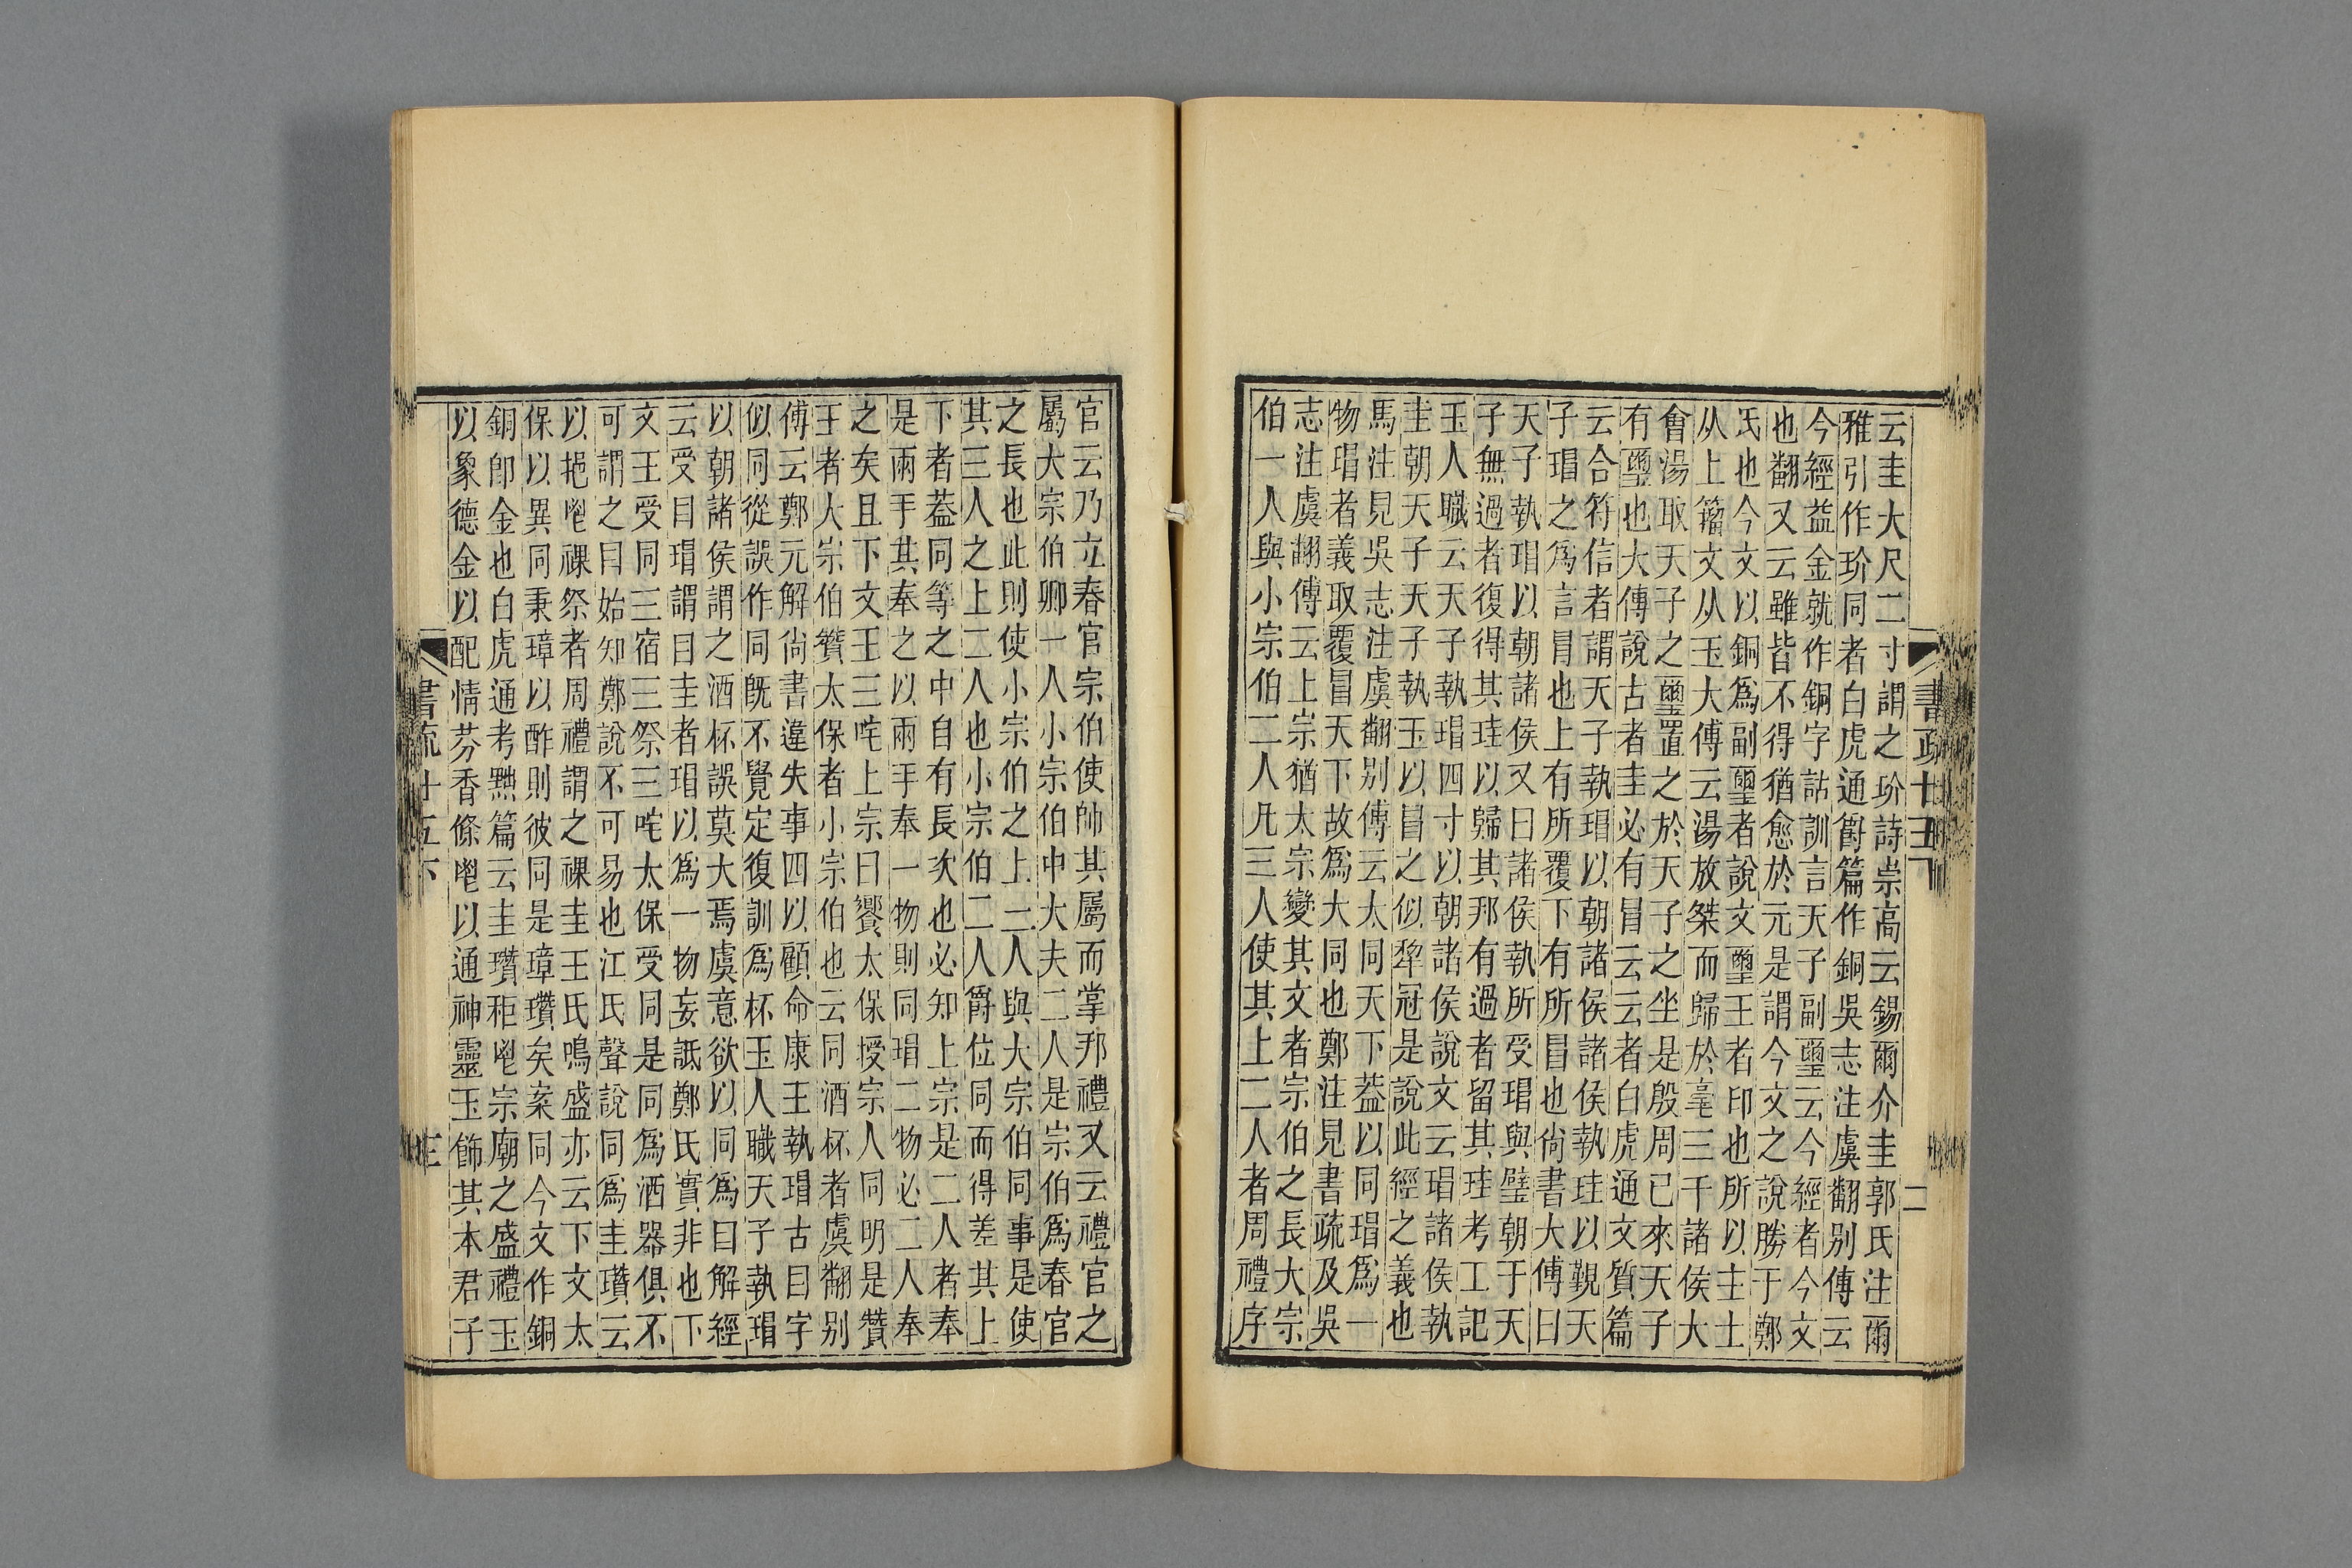 云圭大尺二寸謂之玠詩崇高云錫爾介圭郭氏注爾
雅引作玠同者白虎通爵篇作銅吳志注虞翻别傳云
今經益金就作銅字詁訓言天子副璽云今經者今文
也翻又云雖皆不得猶愈於元是謂今文之說勝于鄭
氏也今文以銅爲副璽者說文璽王者印也所以主土
从土籒文从玉大傅云湯放桀而歸於亳三千諸侯大
會湯取天子之璽置之於天子之坐是殷周已來天子
有璽也大傳說古者圭必有冒云云者白虎通文質篇
云合符信者謂天子執瑁以朝諸侯諸侯執珪以覲天
子瑁之爲言冒也上有所覆下有所冒也尙書大傅曰
天子執瑁以朝諸侯又曰諸侯執所受瑁與璧朝于天
子無過者復得其珪以歸其邦有過者留其珪考工記
玉人職云天子執瑁四寸以朝諸侯說文云瑁諸侯執
圭朝天子天子執玉以冒之似犂冠是說此經之義也
馬注見吳志注虞翻别傳云太同天下葢以同瑁爲一
物瑁者義取覆冒天下故爲大同也鄭注見書疏及吳
志注虞翻傳云上宗猶太宗變其文者宗伯之長大宗
伯一人與小宗伯二人凡三人使其上二人者周禮序
書疏十五下
二
官云乃立春官宗伯使帥其屬而掌邦禮又云禮官之
屬大宗伯卿一人小宗伯中大夫二人是宗伯爲春官
之長也此則使小宗伯之上二人與大宗伯同事是使
其三人之上二人也小宗伯二人爵位同而得差其上
下者葢同等之中自有長次也必知上宗是二人者奉
是兩手其奉之以兩手奉一物則同瑁二物必二人奉
之矣且下文王三咤上宗曰饗太保授宗人同明是贊
王者大宗伯贊太保者小宗伯也云同酒杯者虞翻别
傅云鄭元解尙書違失事四以顧命康王執瑁古曰字
似同從誤作同旣不覺定復訓爲杯玉人職天子執瑁
以朝諸侯謂之酒杯誤莫大焉虞意欲以同爲曰解經
云受曰瑁謂曰圭者瑁以爲一物妄詆鄭氏實非也下
文王受同三宿三祭三咤太保受同是同爲酒器俱不
可謂之曰始知鄭說不可易也江氏聲說同爲圭瓚云
以挹鬯祼祭者周禮謂之祼圭王氏鳴盛亦云下文太
保以異同秉璋以酢則彼同是璋瓚矣案同今文作銅
銅卽金也白虎通考黜篇云圭瓚秬鬯宗廟之盛禮玉
以象德金以配情芬香條鬯以通神靈玉飾其本君子
書疏十五下
三